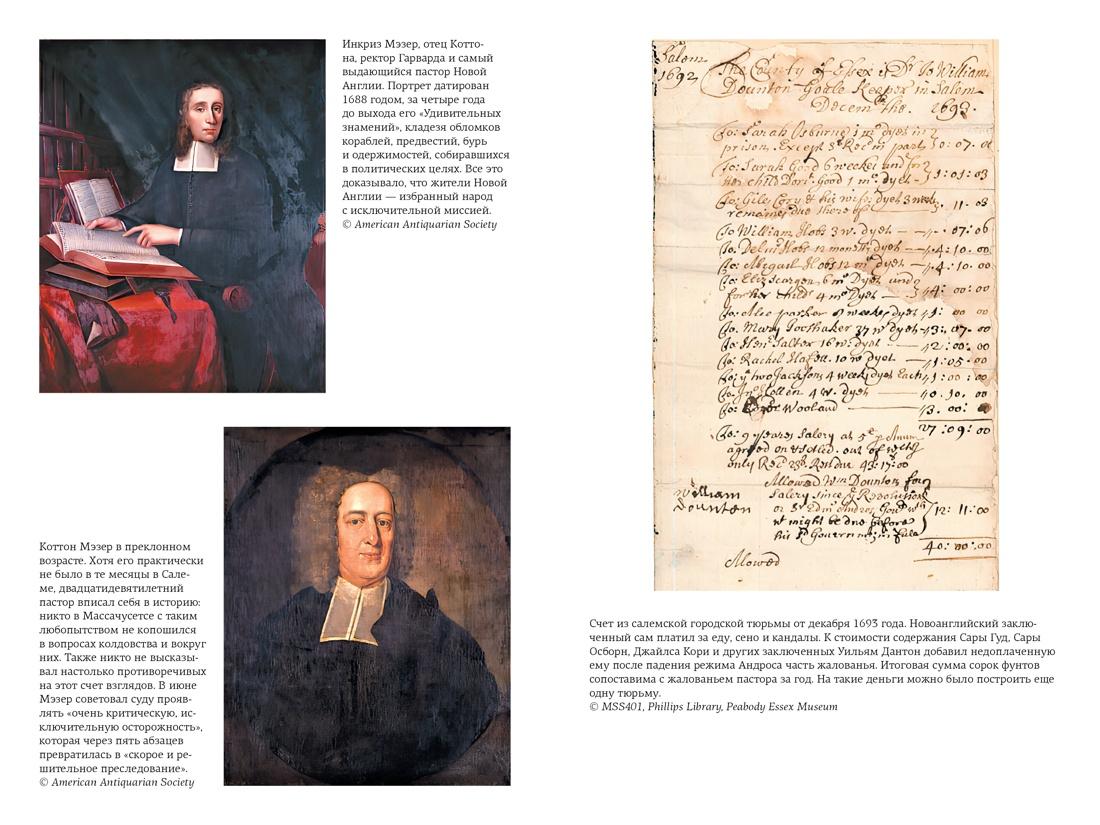 Инкриз Мэзер, отец Котто-
на, ректор Гарварда и самый
выдающийся пастор Новой
Англии. Портрет датирован
1688 годом, за четыре года
до выхода его «Удивительных
знамений», кладезя обломков
кораблей, предвестий, бурь
и одержимостей, собиравшихся
в политических целях. Все это
доказывало, что жители Новой
Англии — избранный народ
с исключительной миссией.
© American Antiquarian Society
Коттон Мэзер в преклонном
возрасте. Хотя его практически
не было в те месяцы в Сале-
ме, двадцатидевятилетний
пастор вписал себя в историю:
никто в Массачусетсе с таким
любопытством не копошился
в вопросах колдовства и вокруг
них. Также никто не высказы-
вал настолько противоречивых
на этот счет взглядов. В июне
Мэзер советовал суду прояв-
лять «очень критическую, ис-
ключительную осторожность»,
которая через пять абзацев
превратилась в «скорое и ре-
шительное преследование».
© American Antiquarian Society
Salem
1692
The County of Essex is Dr To William
Dounton Goale Keeper in Salem
Decem the. 1693.
To: Sarah Osburne 1 m dyet in
prison, Except 3 Recd in part
To: Sarah Good 6 weekes and for
her child Dorit: Good 1 mo. dyet 1:01:03
To: Giles Cory & his wife dyet 3 weeks
To William Hobs 3 w. dyet 07:06
12 mon dyet 4:10:00
To: Abigail Hobs 12 m dyet 4:10:00
6 mo Dyet and
for her child 4 mo Dyet 4:00:00
parker 8 weekes dyet 1:00:00
To: Mary 37 w dyet 3:07:00
To: Salter 16 w: dyet 2:00:00
To: Rachel 10 w dyet 1:05:00
To: two Jacksons 4 weeks dyet Each 1:00:00
4 w. dyet 0.10.00
To: Wooland 3.00:
To: 9 yeares Salery at 5 p Anum
agreed on
only Recd Rest due 43:17:00
27:09:00
Allowed Wm Dounton for
William
Dounton
Salery since Revolution
or Sr Edm Andros
might be due before
his Government
12:11:00
40:00:00
Allowed
Счет из салемской городской тюрьмы от декабря 1693 года. Новоанглийский заклю-
ченный сам платил за еду, сено и кандалы. К стоимости содержания Сары Гуд, Сары
Осборн, Джайлса Кори и других заключенных Уильям Дантон добавил недоплаченную
ему после падения режима Андроса часть жалованья. Итоговая сумма сорок фунтов
сопоставима с жалованьем пастора за год. На такие деньги можно было построить еще
одну тюрьму.
© MSS401, Phillips Library, Peabody Essex Museum